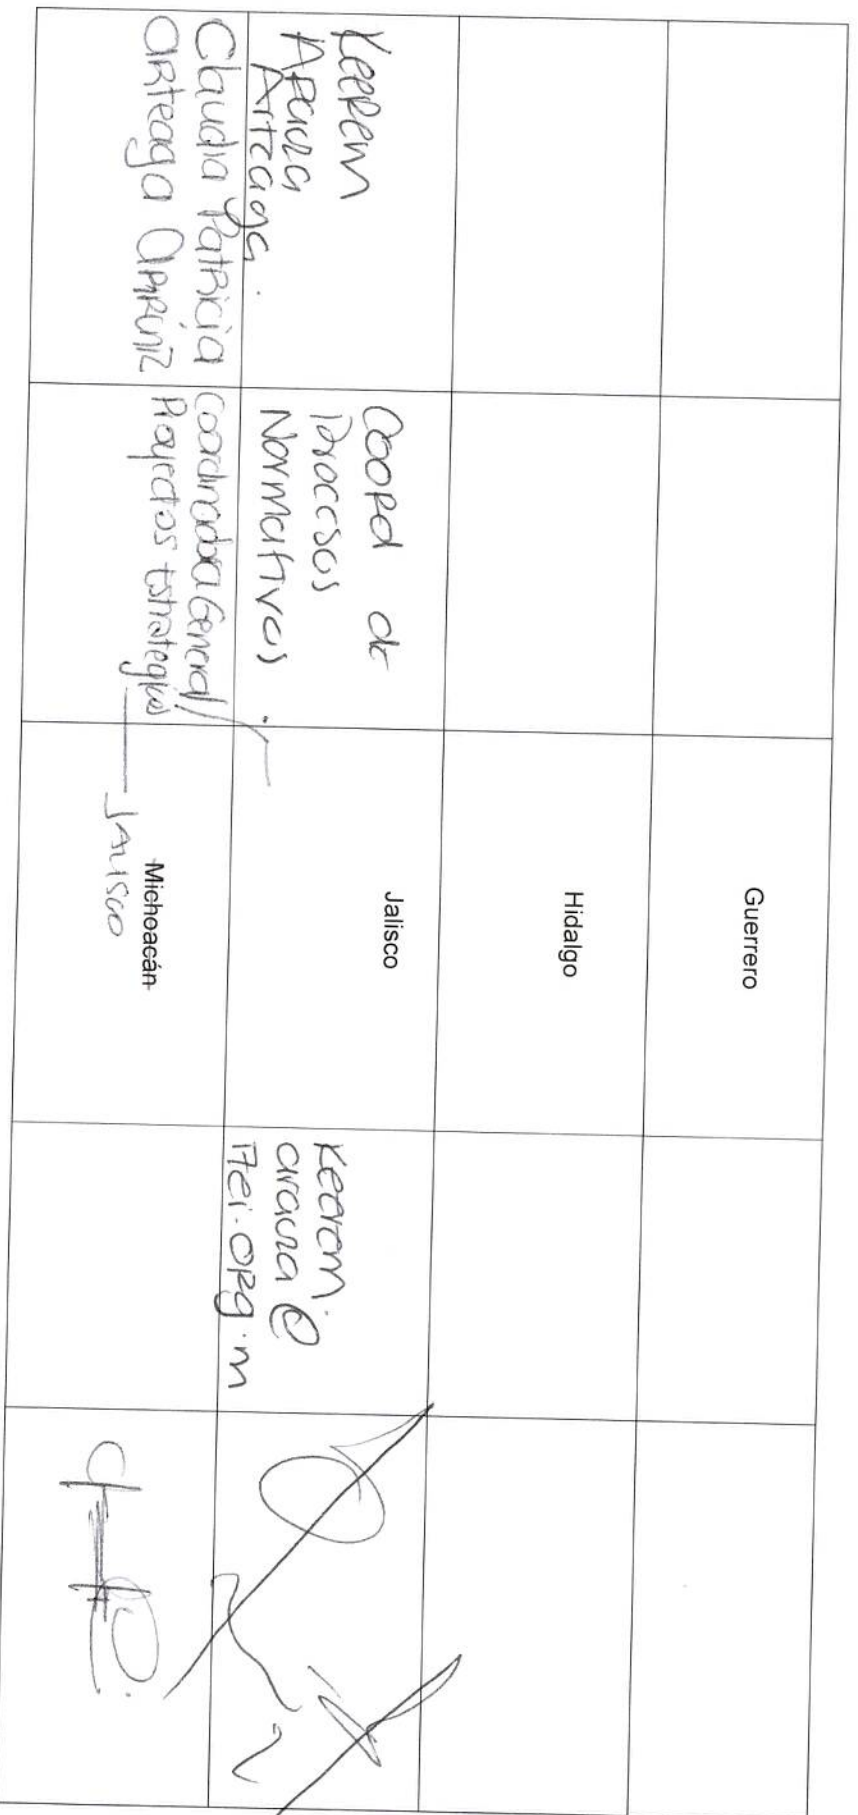 Guerrero
Hidalgo
Keerem
Arauza
Arteaga.
Coord de
Procesos
Normativos.
Jalisco
Keerem.
arauza@
itei.org.m
Claudia Patricia
Arteaga Arróniz
Coordinadora General/
Proyectos Estrategicos
Michoacán
Jalisco